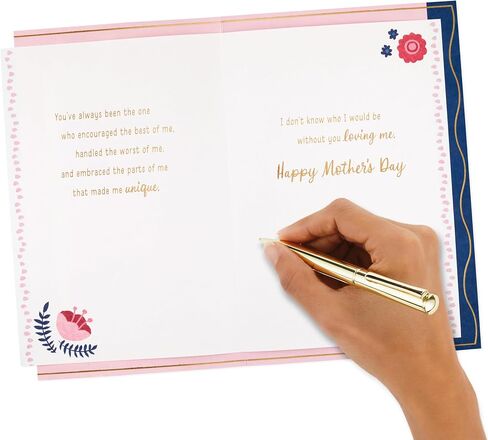 You've always been the one
who encouraged the best of me,
handled the worst of me,
and embraced the parts of me
that made me unique.
I don't know who I would be
without you loving me.
Happy Mother's Day